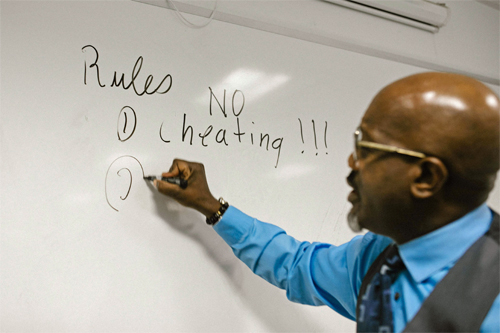 Rules
① NO cheating!!!